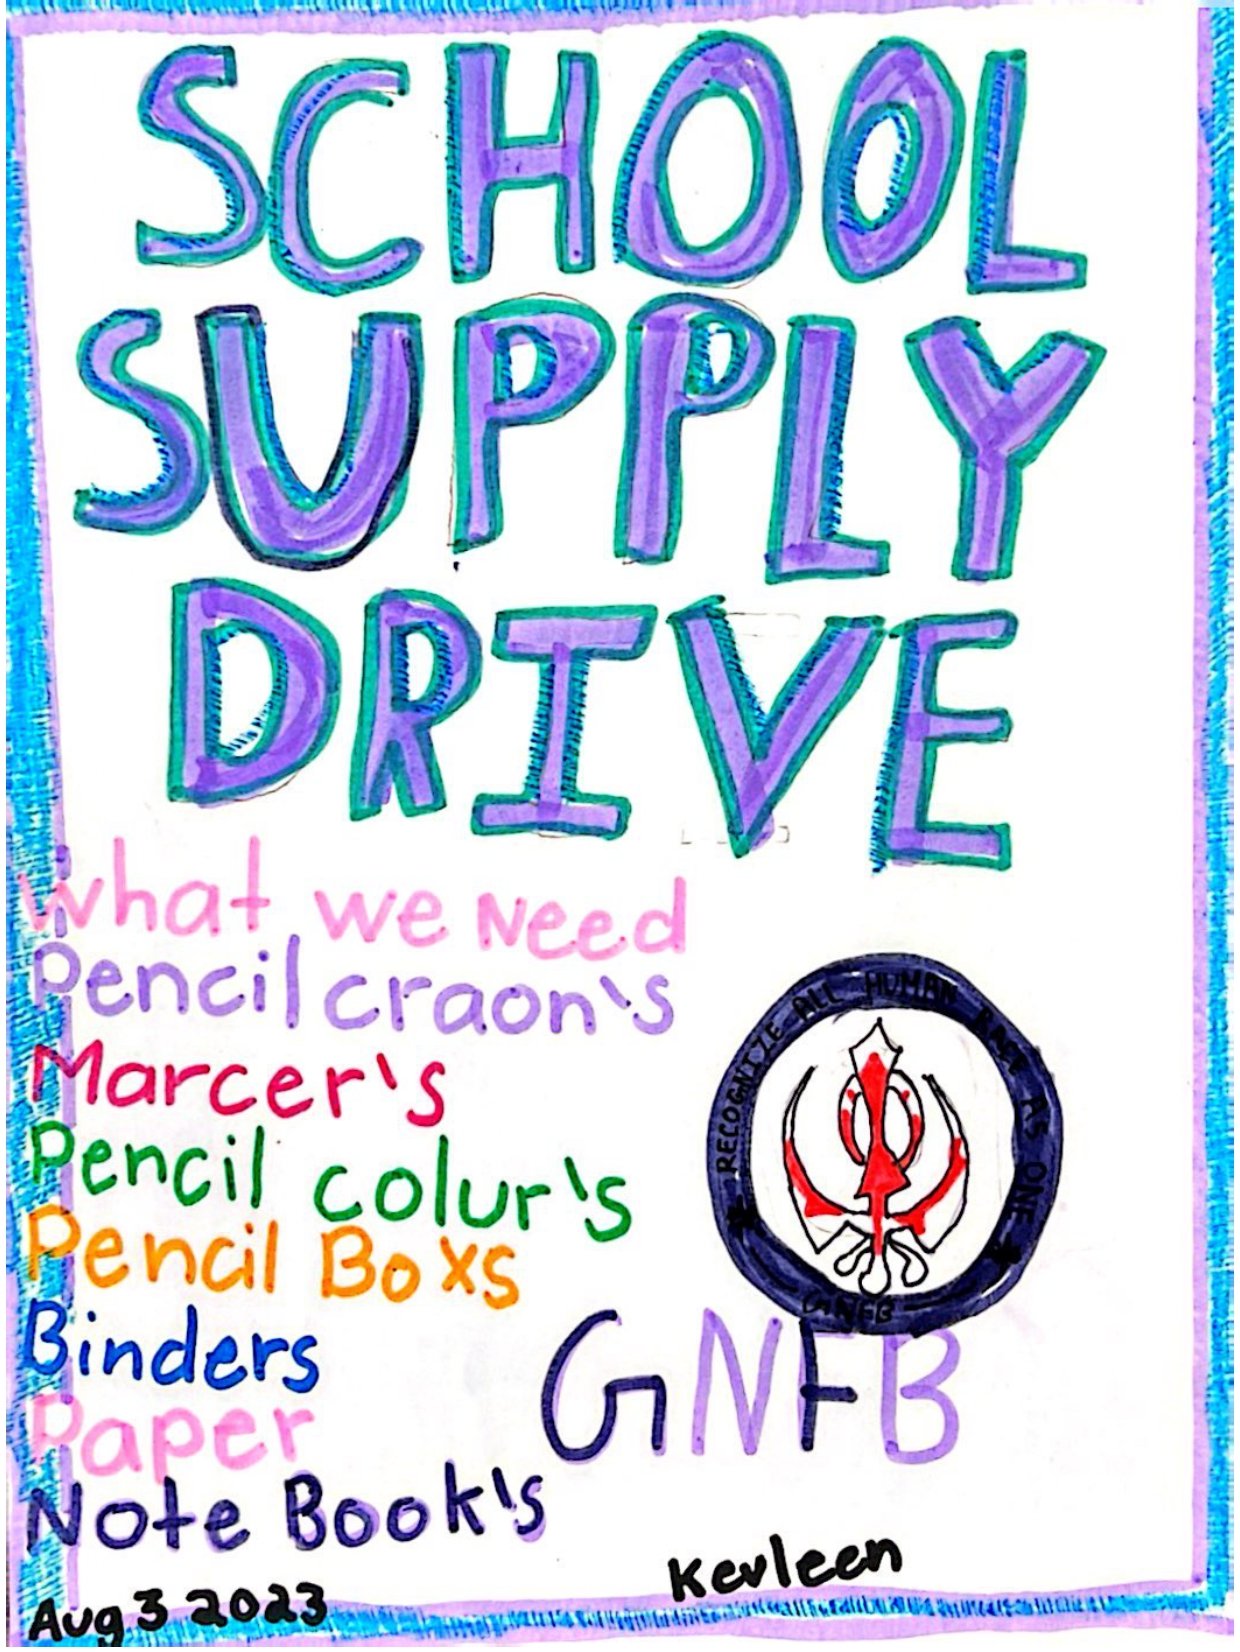 SCHOOL
SUPPLY
DRIVE
What we Need
Pencil craon's
Marcer's
Pencil colur's
Pencil Boxs
Binders
Paper
Note Book's
RECOGNIZE ALL HUMAN RACE AS ONE
GNFB
GNFB
Kevleen
Aug 3 2023